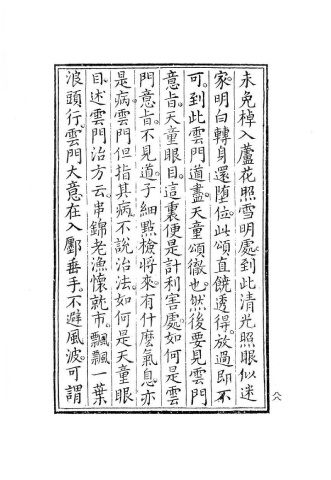 未免棹入蘆花照雪明處到此清光照眼似迷
家明白轉身還墮位此頌直饒透得放過即不
可到此雲門道盡天童頌徹也然後要見雲門
意旨天童眼目這裏便是計利害處如何是雲
門意旨不見道子細點檢將來有什麼氣息亦
是病雲門但指其病不說治法如何是天童眼
目述雲門治方云串錦老漁懷就市飄飄一葉
浪頭行雲門大意在入鄽垂手不避風波可謂
六八